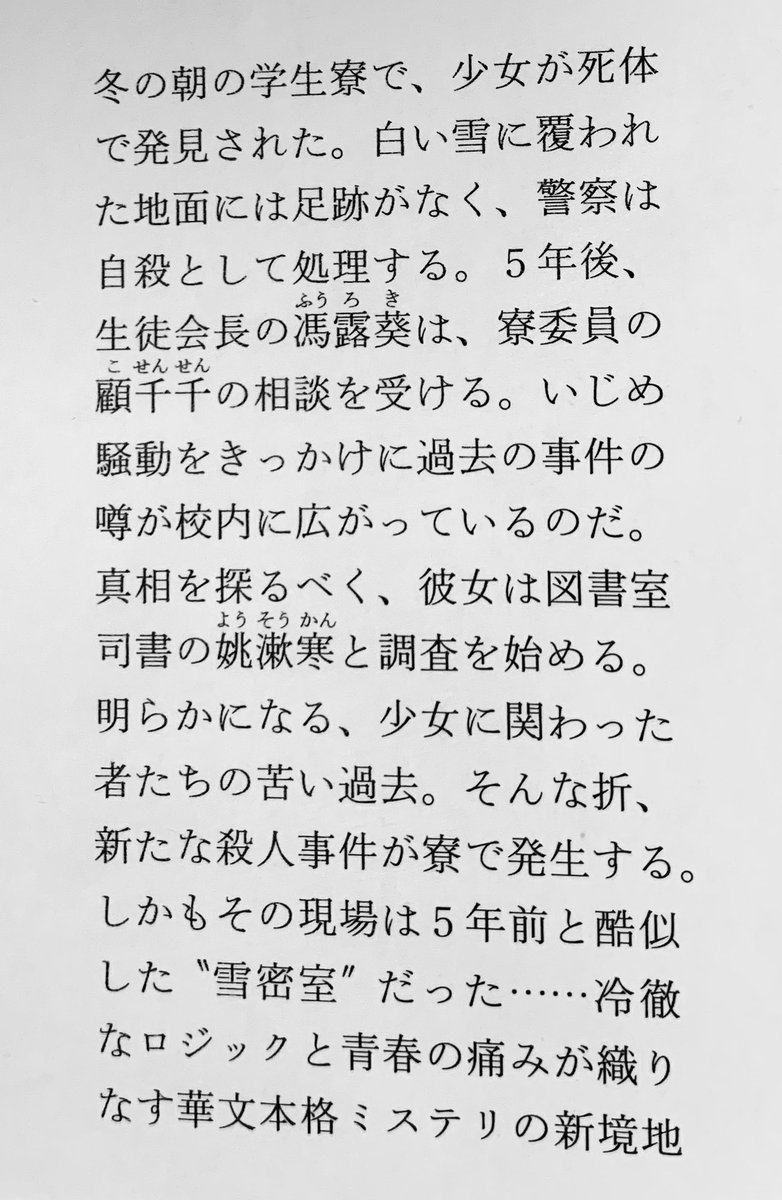 冬の朝の学生寮で、少女が死体
で発見された。白い雪に覆われ
た地面には足跡がなく、警察は
自殺として処理する。５年後、
ふうろき
生徒会長の馮露葵は、寮委員の
こせんせん
顧千千の相談を受ける。いじめ
騒動をきっかけに過去の事件の
噂が校内に広がっているのだ。
真相を探るべく、彼女は図書室
ようそうかん
司書の姚漱寒と調査を始める。
明らかになる、少女に関わった
者たちの苦い過去。そんな折、
新たな殺人事件が寮で発生する。
しかもその現場は５年前と酷似
した〝雪密室〟だった……冷徹
なロジックと青春の痛みが織り
なす華文本格ミステリの新境地